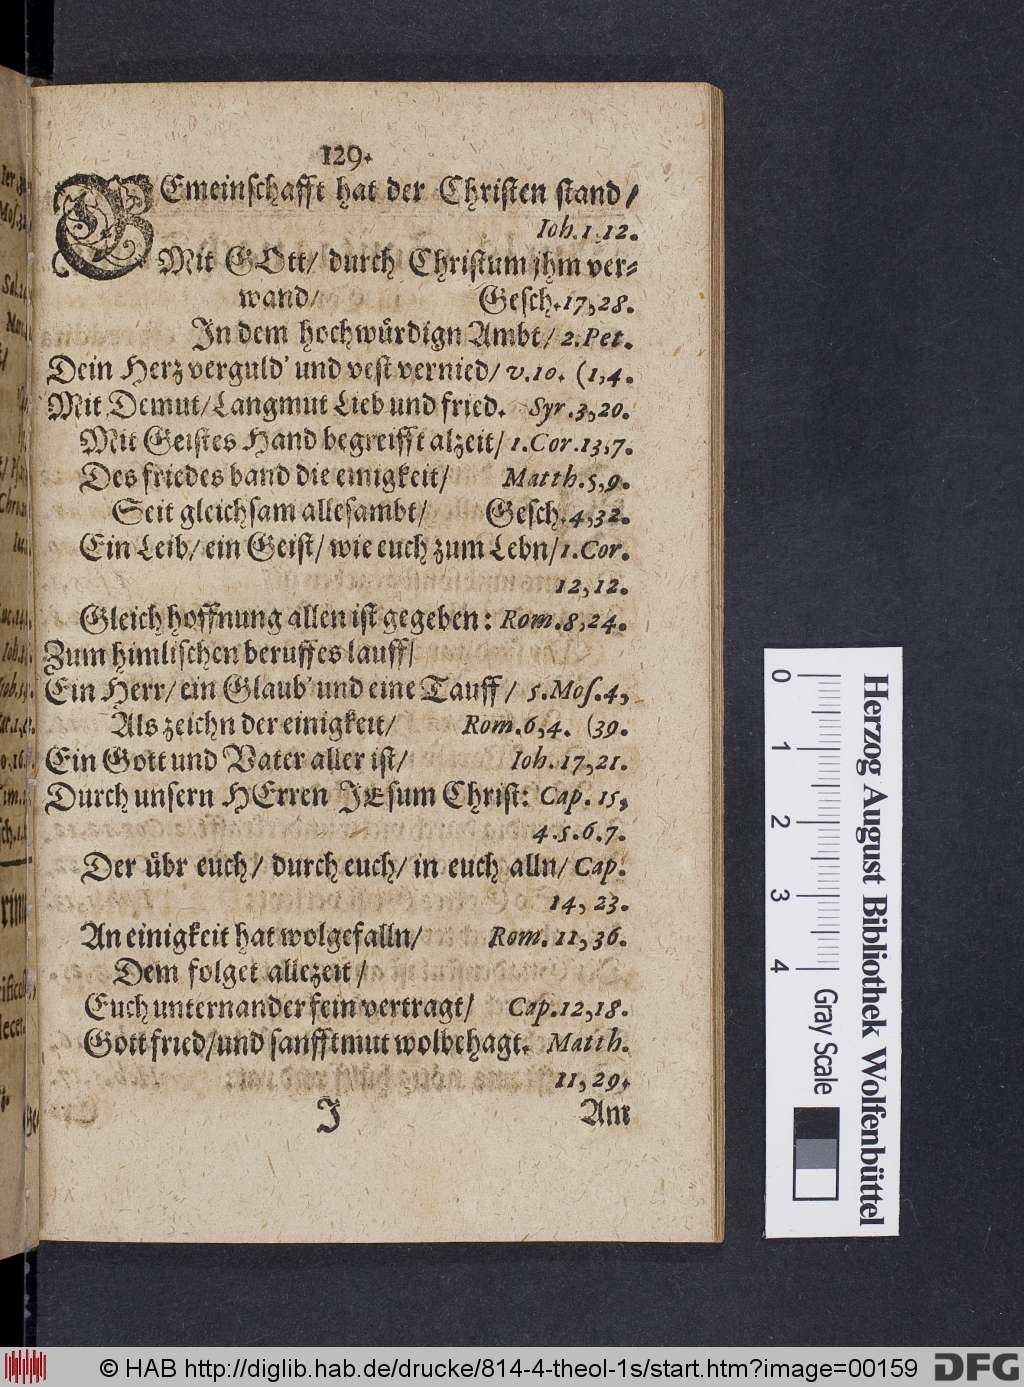 129.
GEmeinschafft hat der Christen stand/
Ioh.1,12.
Mit GOtt/ durch Christum jhm ver-
wand/ Gesch.17,28.
In dem hochwürdign Ambt/ 2.Pet.
Dein Herz verguld' und vest vernied/ v.10. (1,4.
Mit Demut/Langmut Lieb und fried. Syr.3,20.
Mit Geistes Hand begreifft alzeit/ 1.Cor.13,7.
Des friedes band die einigkeit/ Matth.5,9.
Seit gleichsam allesambt/ Gesch.4,32.
Ein Leib/ ein Geist/ wie euch zum Lebn/1.Cor.
12,12.
Gleich hoffnung allen ist gegeben: Rom.8,24.
Zum himlischen beruffes lauff/
Ein Herr/ ein Glaub' und eine Tauff/ 5.Mos.4,
Als zeichn der einigkeit/ Rom.6,4. (39.
Ein Gott und Vater aller ist/ Ioh.17,21.
Durch unsern HErren JEsum Christ: Cap.15,
4.5.6.7.
Der übr euch/ durch euch/ in euch alln/ Cap.
14,23.
An einigkeit hat wolgefalln/ Rom.11,36.
Dem folget allezeit/
Euch unternander fein vertragt/ Cap.12,18.
Gott fried/und sanfftmut wolbehagt. Matth.
11,29.
J Am
0 1 2 3 4
Gray Scale
Herzog August Bibliothek Wolfenbüttel
© HAB http://diglib.hab.de/drucke/814-4-theol-1s/start.htm?image=00159
DFG